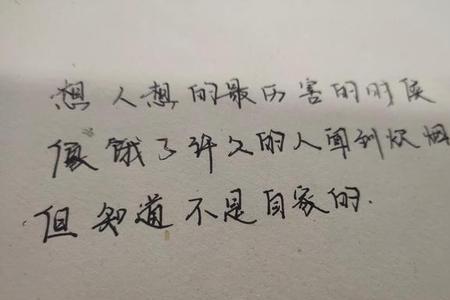 想人想的最历害的时候
像饿了许久的人闻到炊烟
但知道不是自家的.